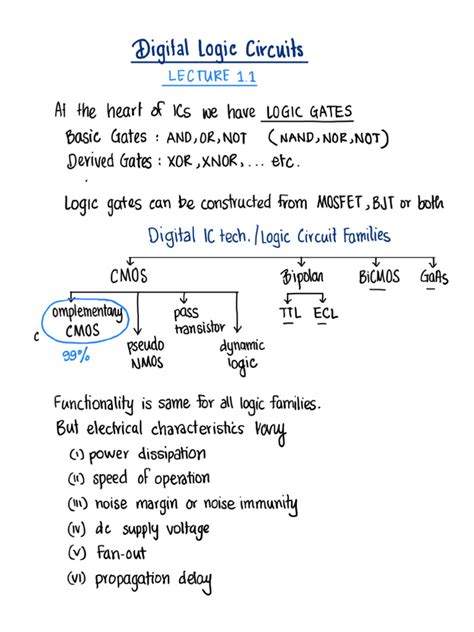 Digital Logic Circuits
LECTURE 1.1
At the heart of ICs we have LOGIC GATES
Basic Gates : AND, OR, NOT (NAND, NOR, NOT)
Derived Gates : XOR, XNOR, ... etc.
Logic gates can be constructed from MOSFET, BJT or both
Digital IC tech. / Logic Circuit Families
CMOS Bipolar BiCMOS GaAs
omplementary
CMOS
c
99%
pseudo
NMOS
pass
transistor
dynamic
logic
TTL ECL
Functionality is same for all logic families.
But electrical characteristics vary
(i) power dissipation
(ii) speed of operation
(iii) noise margin or noise immunity
(iv) dc supply voltage
(v) Fan-out
(vi) propagation delay